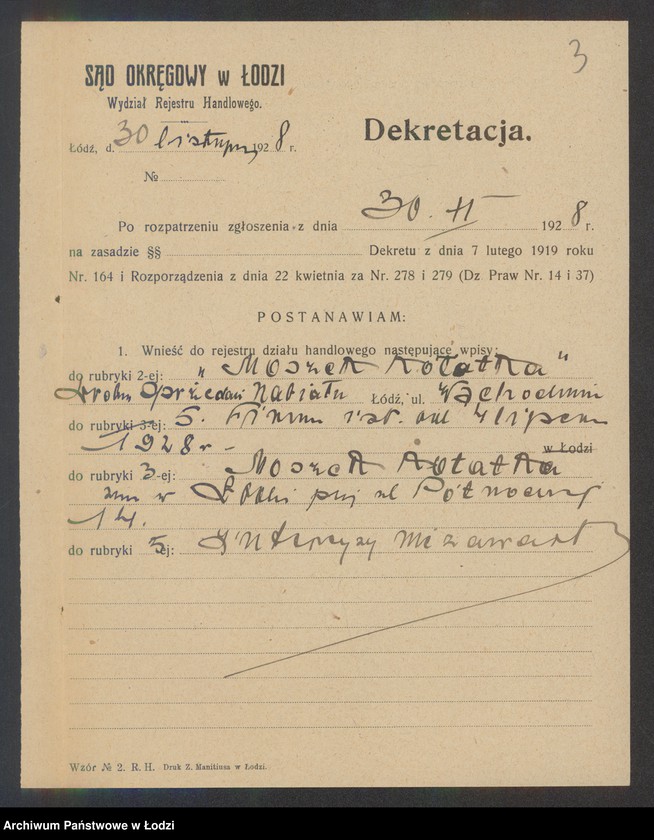 3
SĄD OKRĘGOWY w ŁODZI
Wydział Rejestru Handlowego.
Dekretacja.
Łódź, d. 30 listopada 1928 r.
№
Po rozpatrzeniu zgłoszenia z dnia 30. 1928 r.
na zasadzie §§ Dekretu z dnia 7 lutego 1919 roku
Nr. 164 i Rozporządzenia z dnia 22 kwietnia za Nr. 278 i 279 (Dz Praw Nr. 14 i 37)
POSTANAWIAM:
1. Wnieść do rejestru działu handlowego następujące wpisy:
do rubryki 2-ej: „Moszek Kołatka"
Sprzedaż Nabiału Łódź, ul. Wschodnia
do rubryki 3-ej: 5. Firma ist. od lipca
1928 r. w Łodzi
do rubryki 3-ej: Moszek Kołatka
zam w Łodzi przy ul Północnej
14.
do rubryki 5ej: Intercyzy nie zawarł
Wzór № 2. R. H. Druk Z. Manitiusa w Łodzi.
Archiwum Państwowe w Łodzi